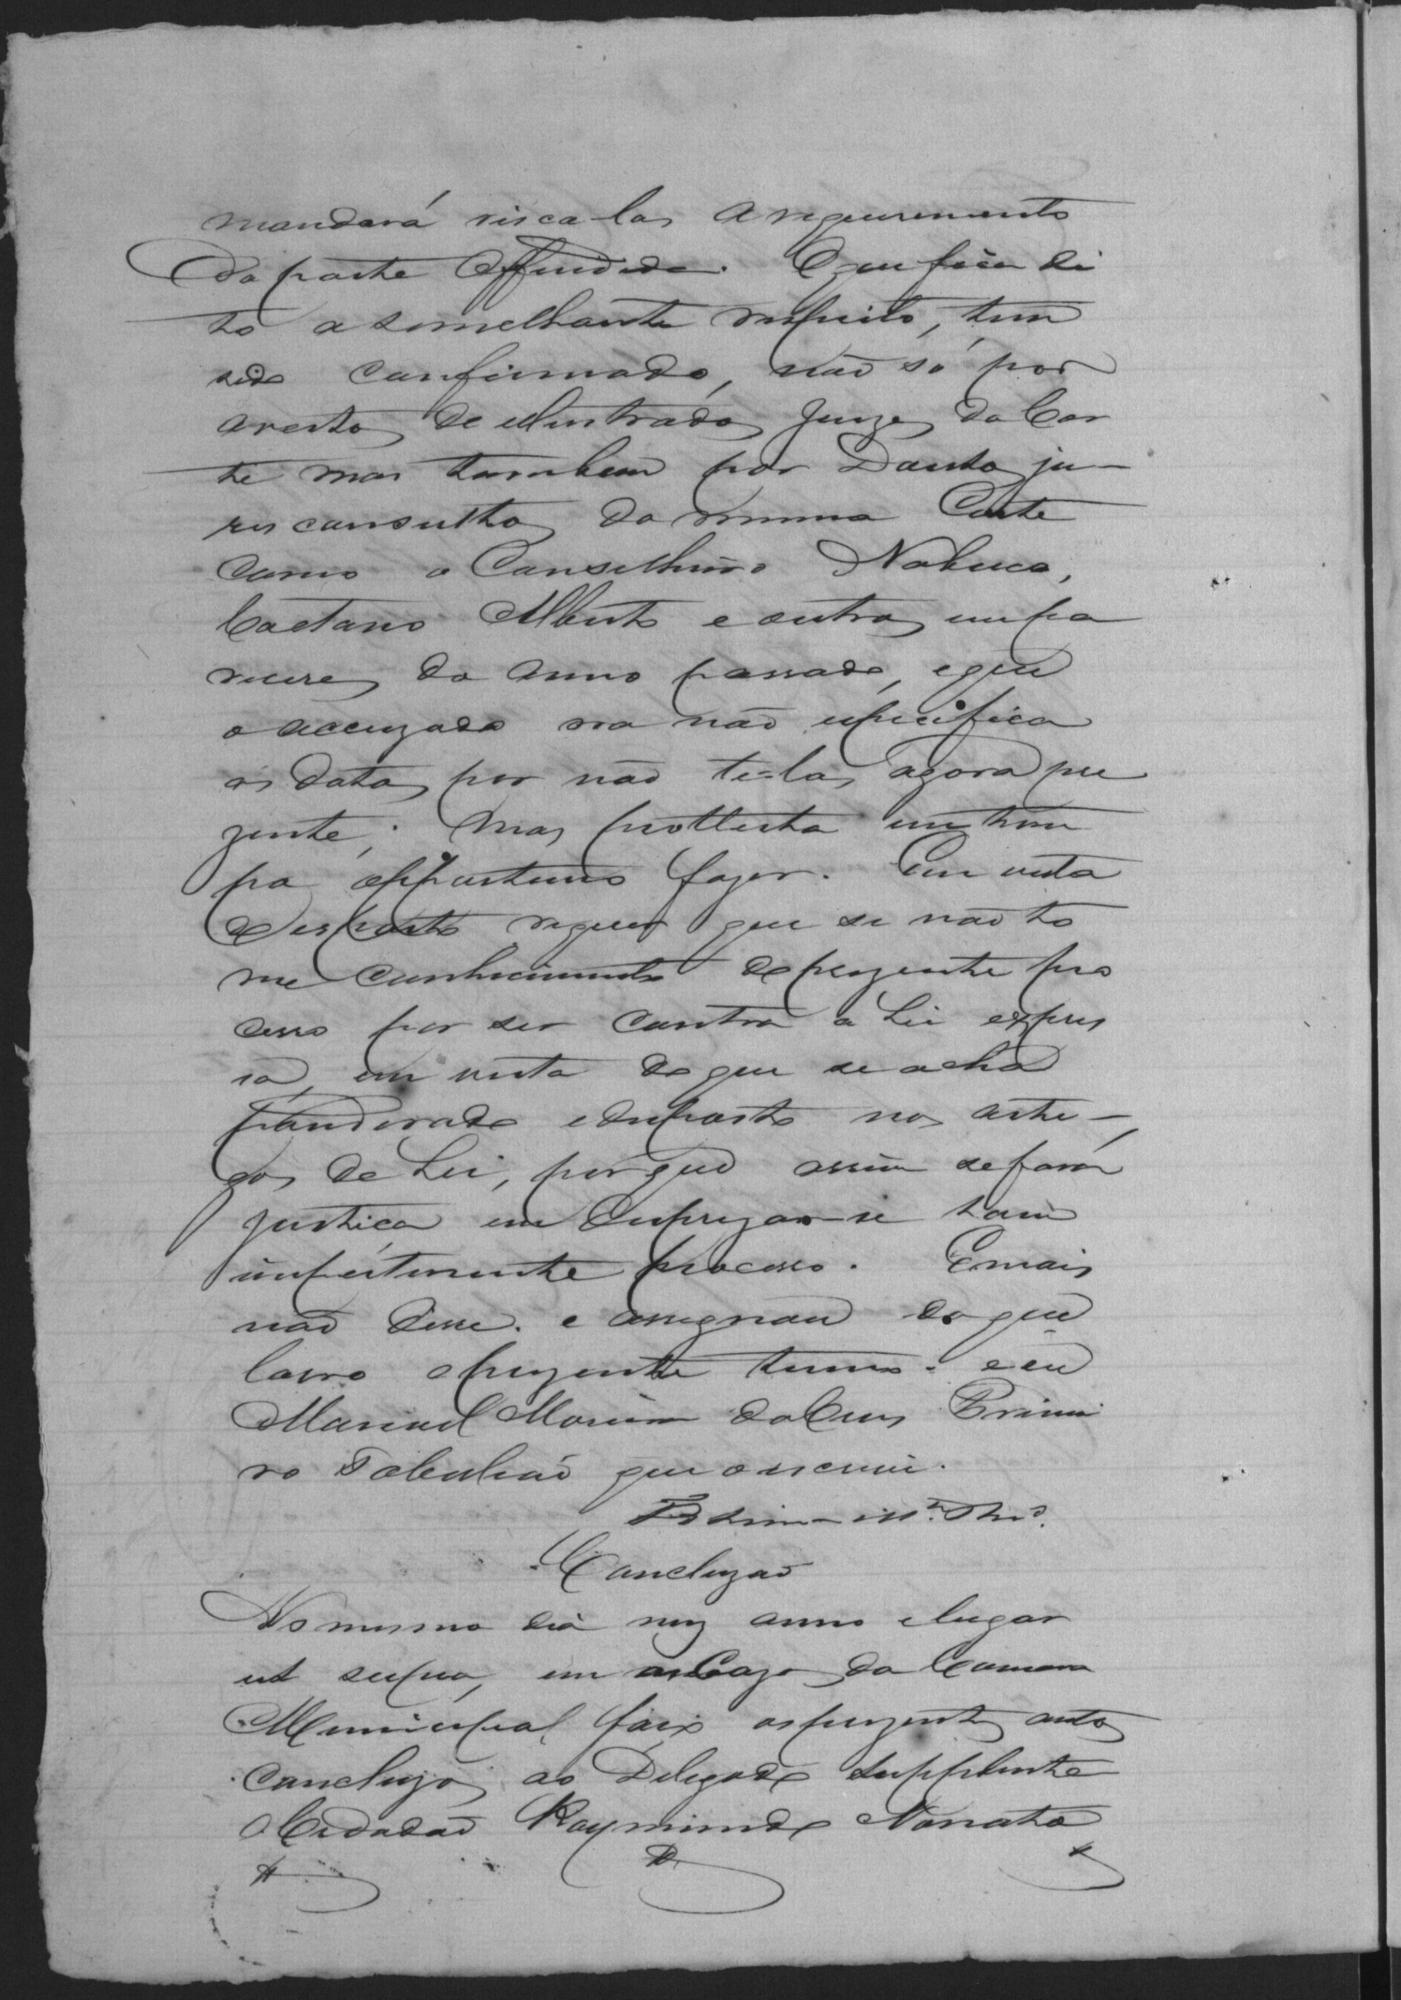 mandará risca-las a requerimento
da parte offendida. O que fica di
to a semelhante respeito, tem
sido confirmado, não só por
arestos de illustrados Juizes da Cor
te mas tambem por Doutos ju-
risconsultos da mesma Corte
como o Conselheiro Nabuco,
Caetano Alberto e outros em pa
receres do anno passado, e que
o accuzado não especifica
as datas por não te-las agora pre
zente; mas protesta em tem
po opportuno fazer. Em vista
do exposto requer que se não to
me conhecimento do prezente pro
cesso por ser contra a Lei expres
sa, em vista do que se acha
ponderado e disposto nos arti-
gos de Lei, por que assim se fará
justiça em desprezar-se tam
impertinente processo. E mais
não disse. e assignou do que
lavro o prezente termo. e eu
Manoel da Cruz Primei
ro Tabelião que o escrevi.
Concluzão
No mesmo dia mez anno e lugar
ut supra, em as Cazas da Camara
Municipal faço os prezentes autos
concluzos ao Delegado Supplente
o Cidadão Raymundo Nonato